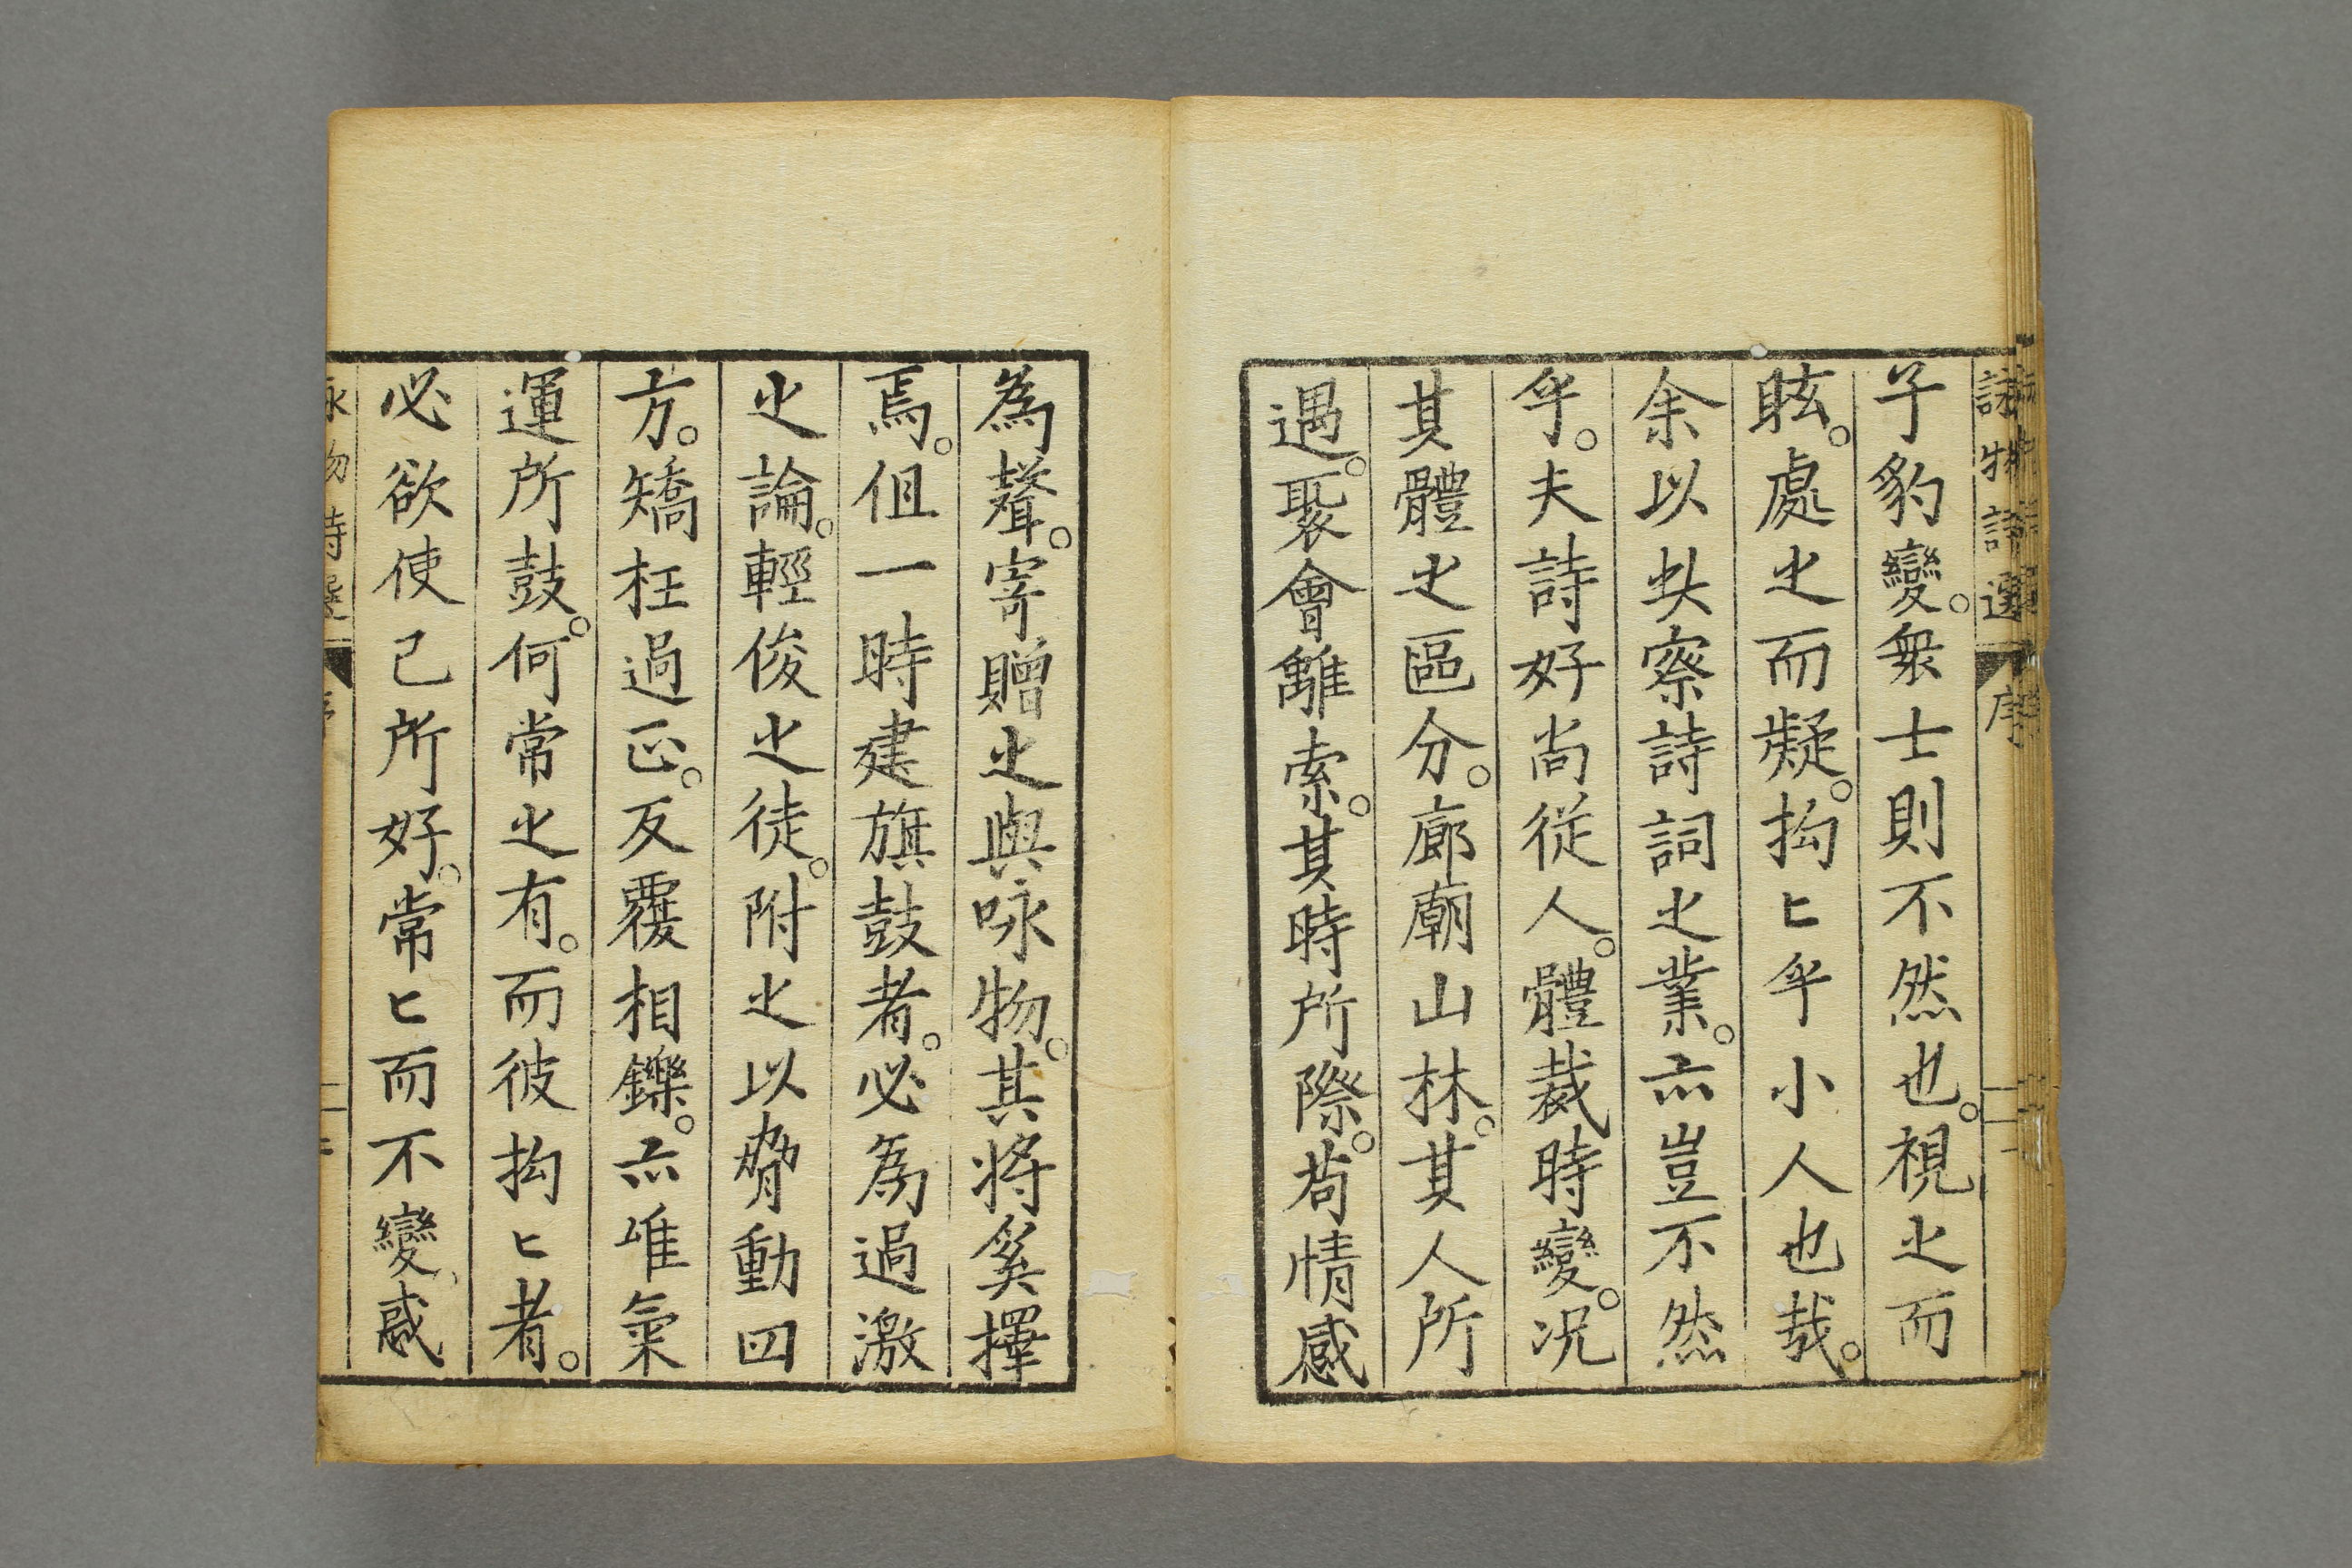 詠物詩選 序
子豹變。衆士則不然也。視之而
眩。處之而凝。拘〻乎小人也哉。
余以此察詩詞之業。亦豈不然
乎。夫詩好尚從人。體裁時變。况
其體之區分。廊廟山林。其人所
遇。聚會離索。其時所際。苟情感
為聲。寄贈之與咏物。其将奚擇
焉。但一時建旗鼓者。必為過激
之論。輕俊之徒。附之以脅動四
方。矯枉過正。反覆相鑠。亦唯氣
運所鼓。何常之有。而彼拘〻者。
必欲使己所好。常〻而不變、感
詠物詩選 序